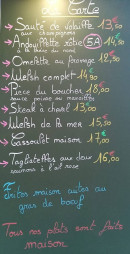 la Carte
Sauté de volaille 13,50
aux champignons
Andouillette grillée 5A 14,50
à la bière du nord
Omelette au fromage 12,50
Welsh complet 14,50
Pièce du boucher 18,00
sauce poivre ou maroilles
Steack à cheval 13,00
Welsh de la mer 15,50
Cassoulet maison 17,00
Tagliatelles aux deux 16,00
saumons à l'aneth
Frites maison cuites au
gras de boeuf
Tous nos plats sont faits
maison